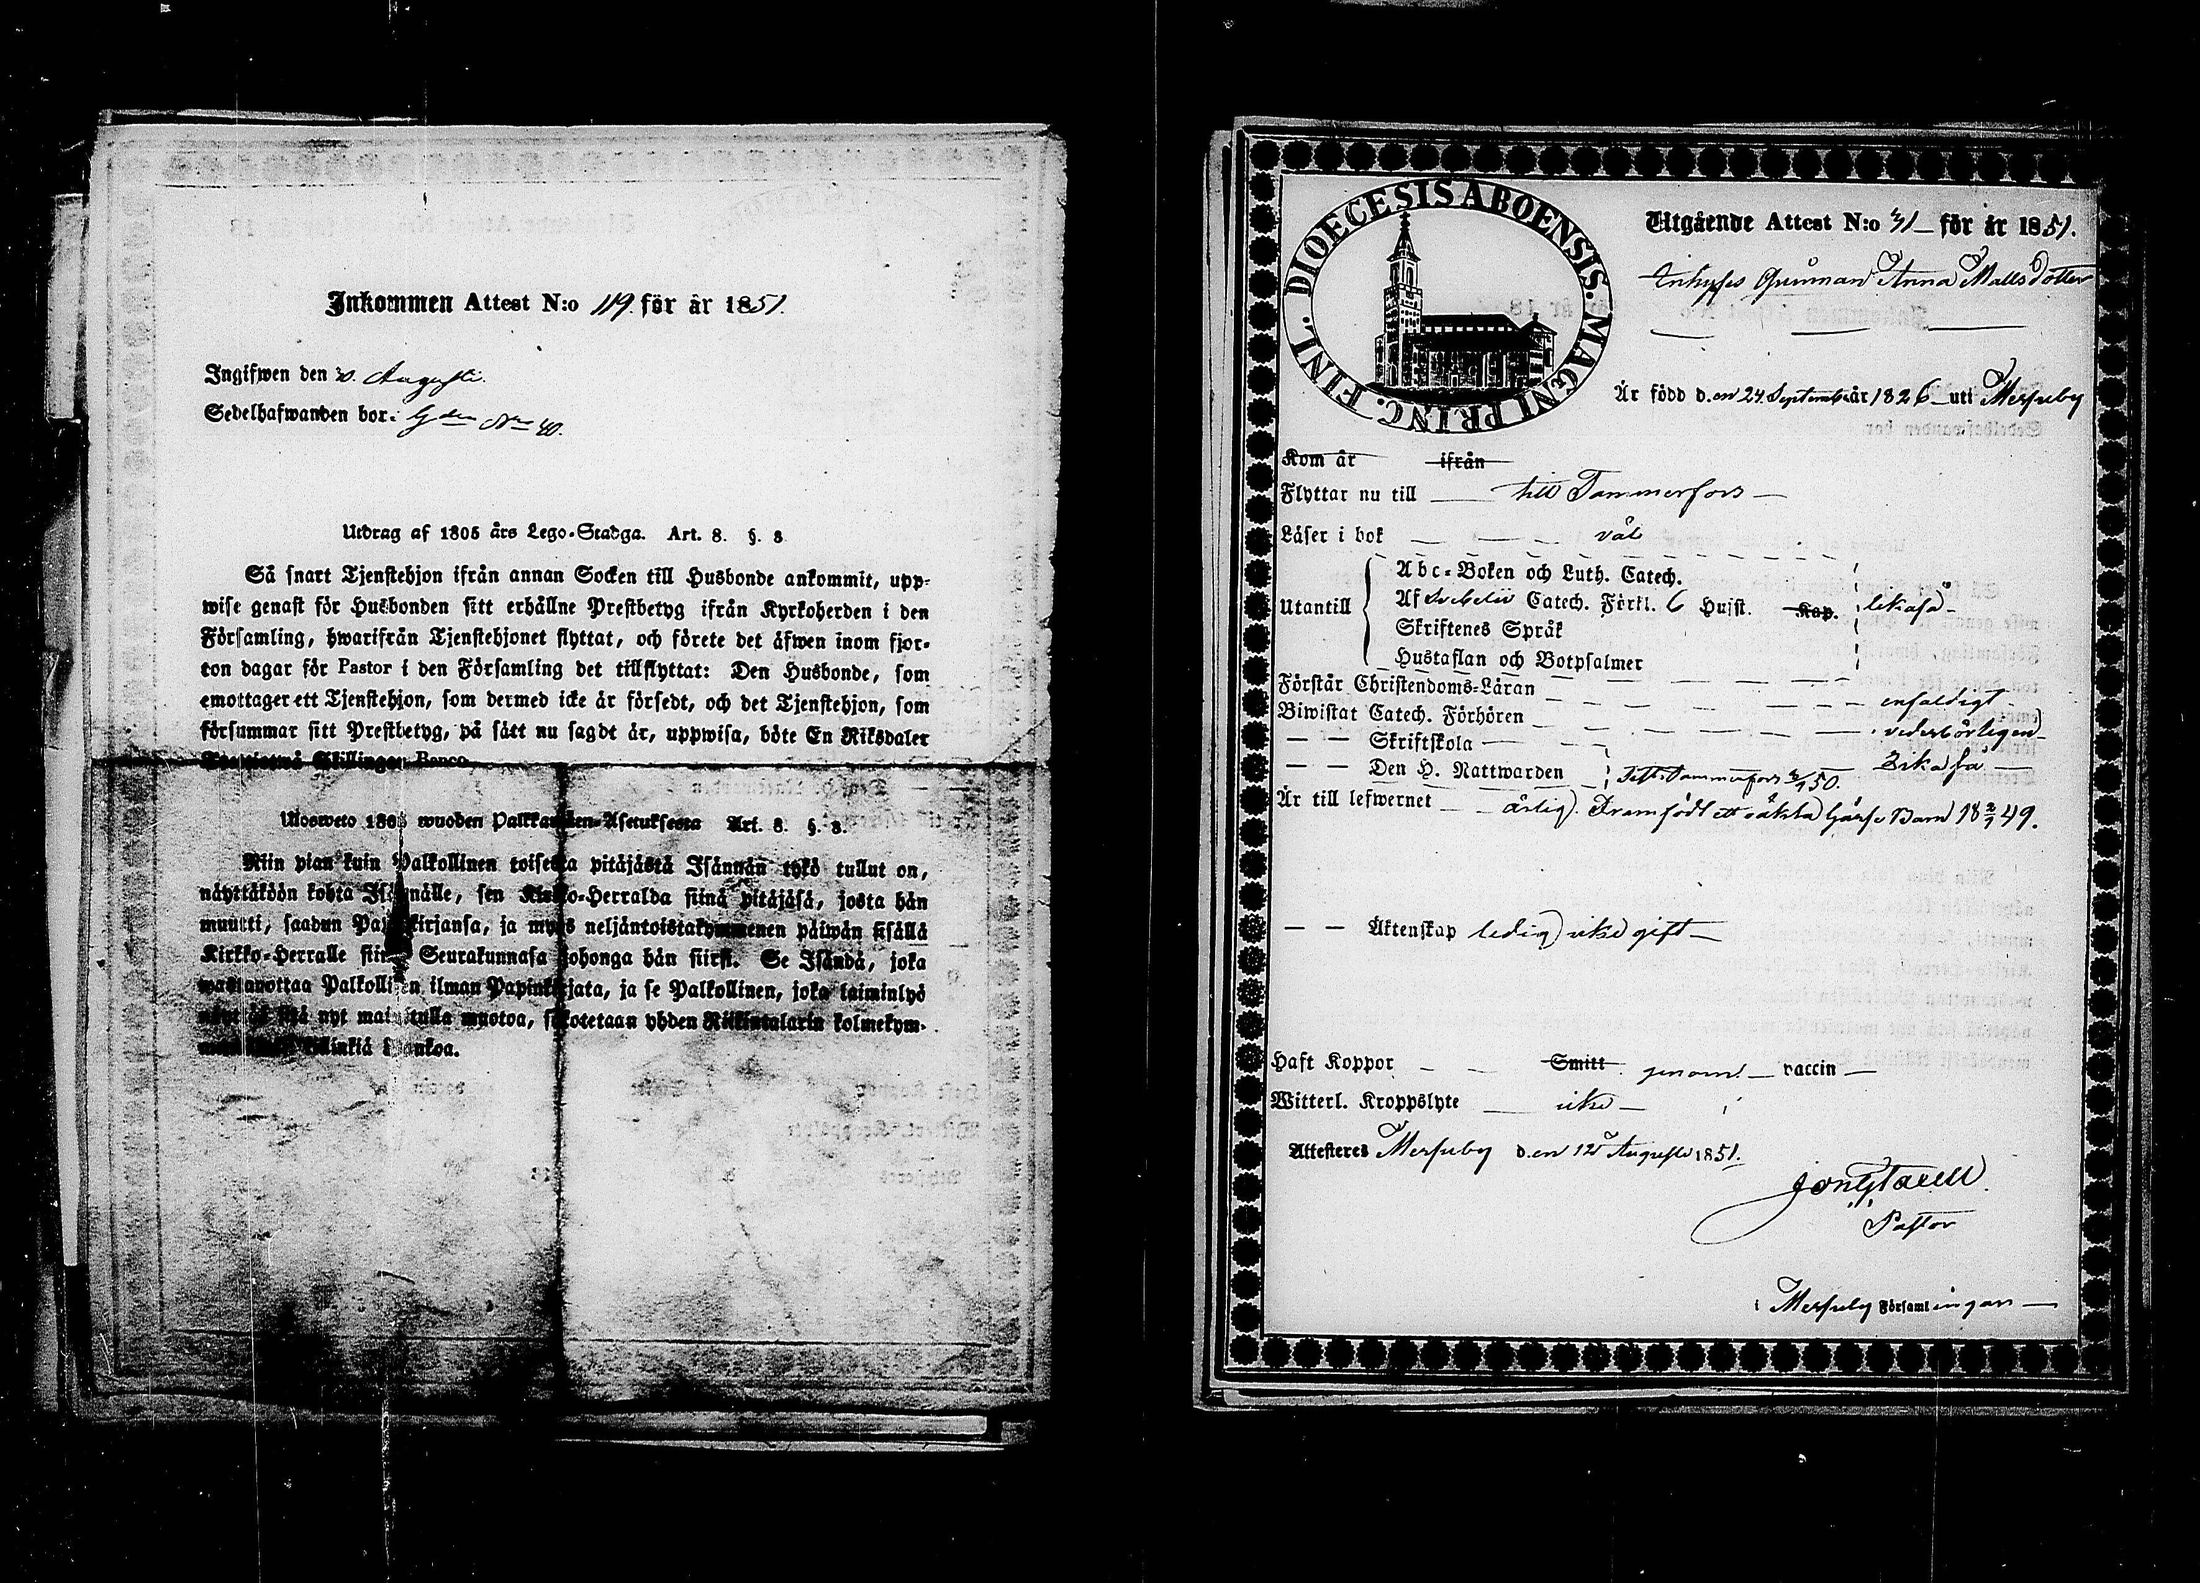 Inkommen Attest N:o 119. för år 1851.
Ingifwen den 30. Augusti.
Sedelhafwanden bor: Gden Nro 40.
Utdrag af 1805 års Lego-Stadga. Art. 8. §. 8
Så snart Tjenstehjon ifrån annan Socken till Husbonde ankommit, upp-
wise genast för Husbonden sitt erhållne Prestbetyg ifrån Kyrkoherden i den
Församling, hwarifrån Tjenstehjonet flyttat, och förete det äfwen inom fjor-
ton dagar för Pastor i den Församling det tillflyttat: Den Husbonde, som
emottager ett Tjenstehjon, som dermed icke är försedt, och det Tjenstehjon, som
försummar sitt Prestbetyg, på sätt nu sagdt är, uppwisa, böte En Riksdaler
Skillingar Banco.
Ulosweto 1805 wuoden Palkkawäen-Asetuksesta Art. 8. §. 8.
Niin pian kuin Palkollinen toisesta pitäjästä Isännän tykö tullut on,
näyttäköön kohta Isännälle, sen Kirkko-Herralda siinä pitäjäsä, josta hän
muutti, saadun Papinkirjansa, ja myös neljäntoistakymmenen päiwän sisällä
Kirkko-Herralle siinä Seurakunnasa johonga hän siirsi. Se Isändä, joka
wastanottaa Palkollisen ilman Papinkirjata, ja se Palkollinen, joka laiminlyö
nyt mainitulla muotoa, sakotetaan yhden Riikintalarin kolmekym-
killinkiä Bankoa.
DIOECESIS ABOENSIS. MAGNI PRINC. FINL.
Utgående Attest N:o 31 för år 1851.
Inhyses Qvinnan Anna Matts Dotter
Är född den 24 September år 1826 uti Messuby
Kom år ifrån
Flyttar nu till till Tammerfors
Läser i bok väl
Abc-Boken och Luth. Catech.
Utantill Af Svebelii Catech. Förkl. 6 Hufst. Kap. likaså
Skriftenes Språk
Hustaflan och Botpsalmer
Förstår Christendoms-Läran enfaldigt
Biwistat Catech. Förhören vederbörligen
Skriftskola likaså
Den H. Nattwarden
Är till lefwernet ärlig. Framfödt ett oäkta Barn 18 49.
Äktenskap ledig icke gift
Haft Koppor Smitt genom vaccin
Witterl. Kroppslyte icke
Attesteres Messuby den 12 Augusti 1851.
Pastor
i Messuby Församlingan